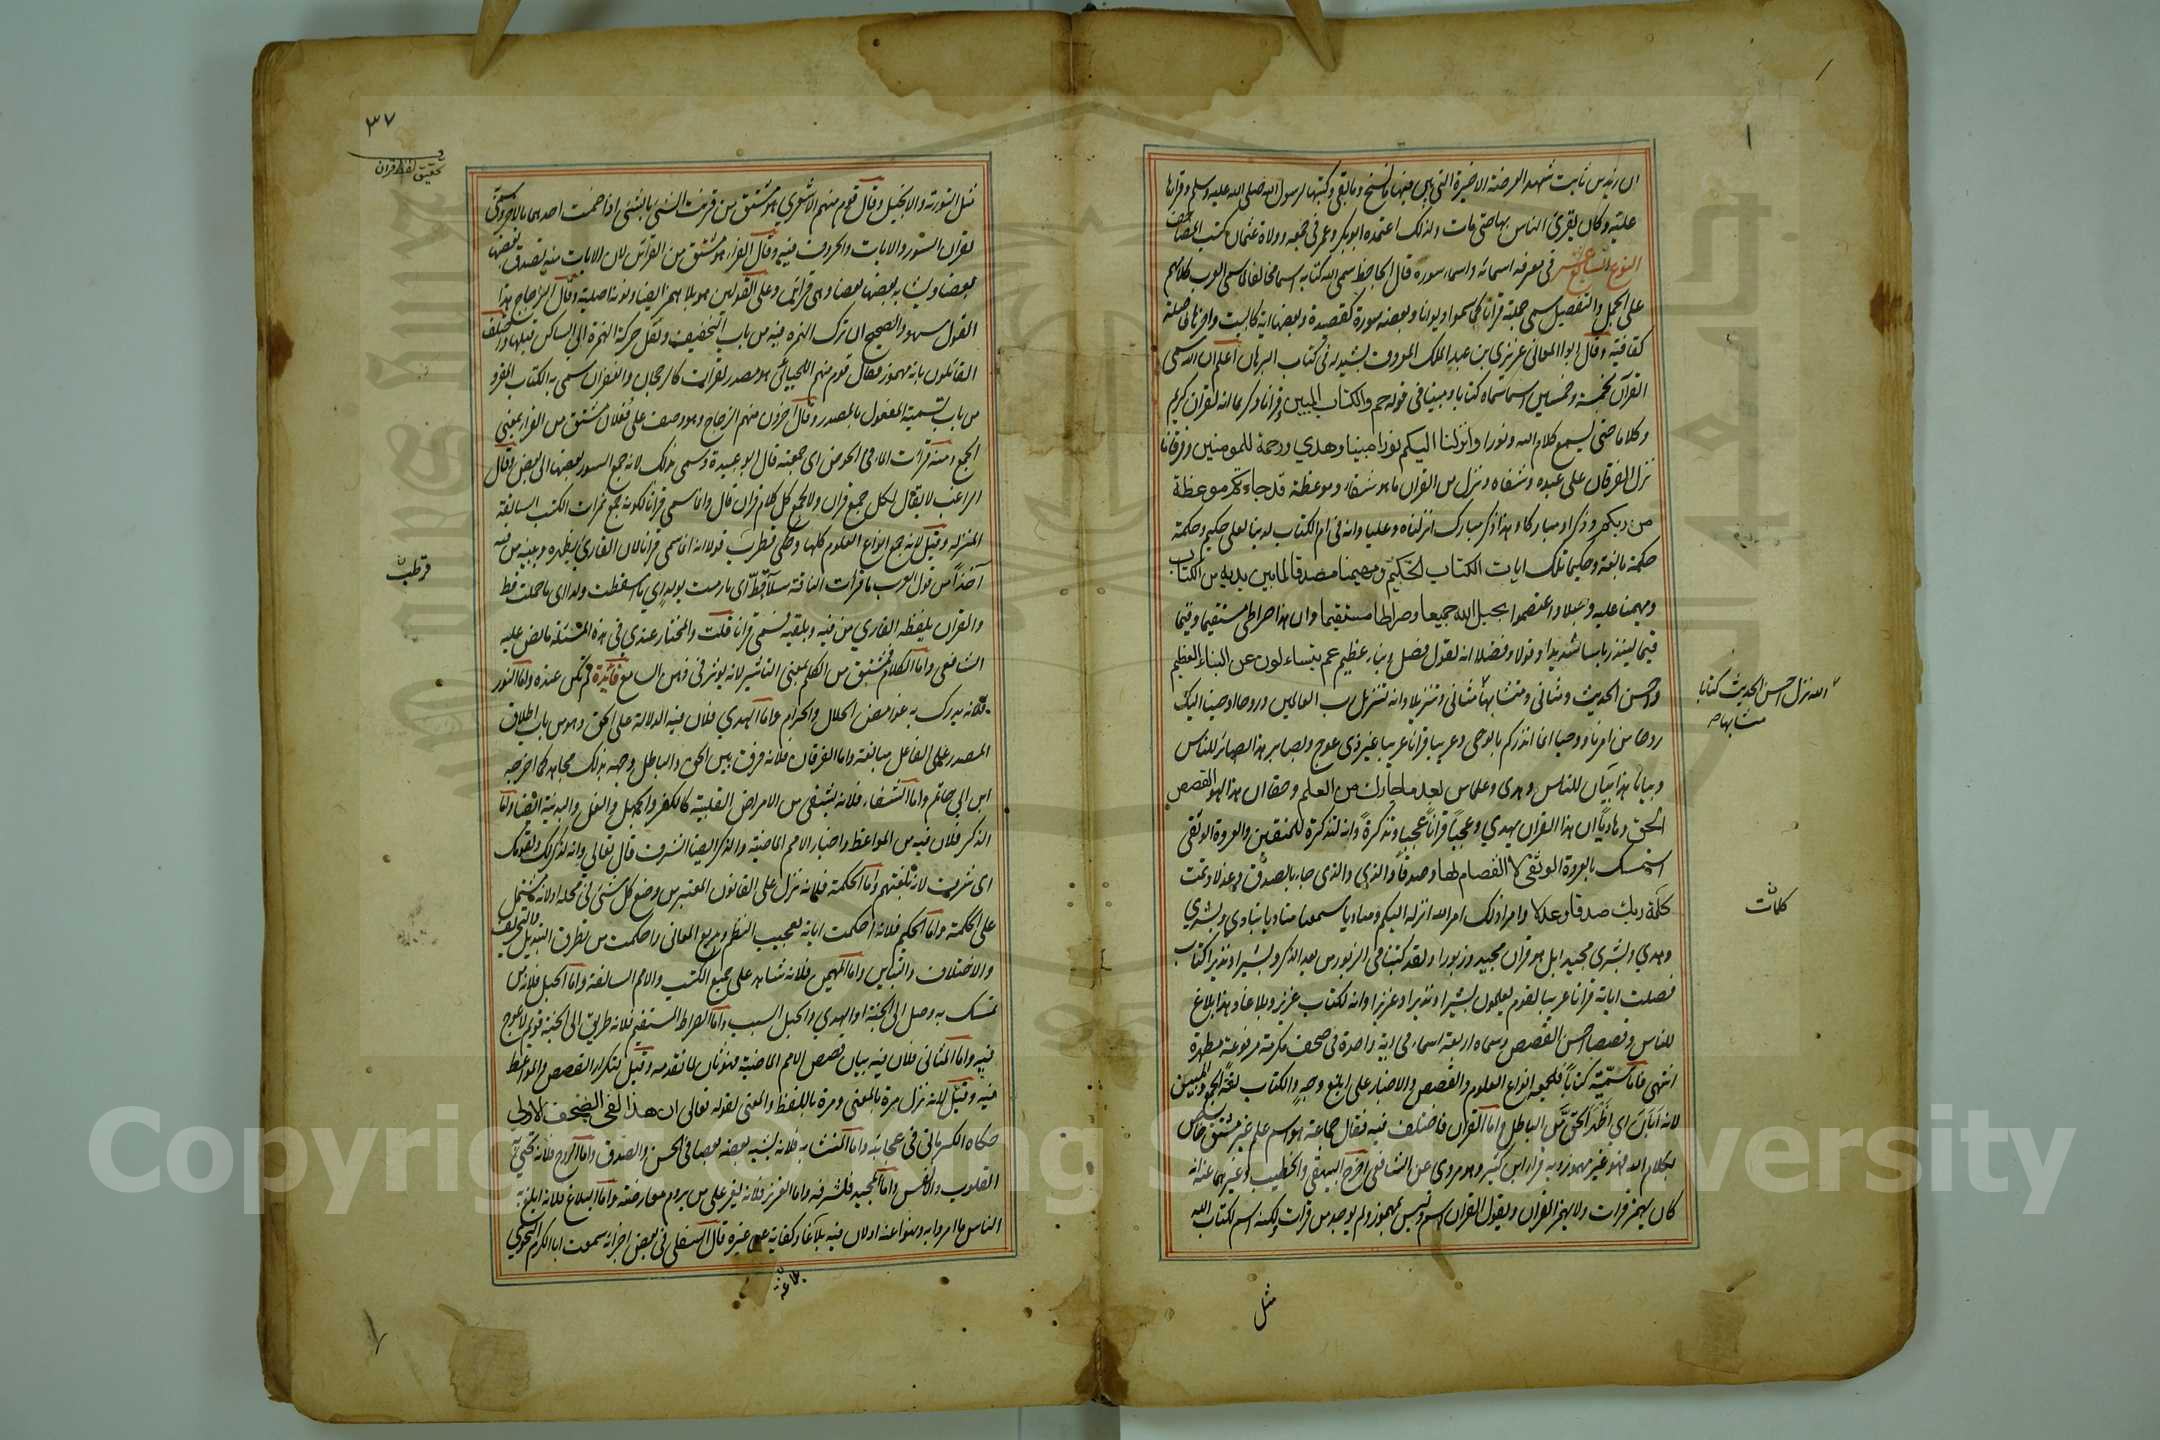 ان زيد بن ثابت شهد العرضة الاخيرة التي بين فيها ما نسخ وما بقي وكتبها لرسول الله صلى الله عليه وسلم وقراها
عليه وكان يقرئ الناس بها حتى مات ولذلك اعتمده ابو بكر وعمر في جمعه وولاه عثمان كتب المصاحف
النوع السابع عشر في معرفة اسمائه واسماء سوره قال الجاحظ سمى الله كتابه اسما مخالفا لما سمى العرب كلامهم
على الجمل والتفصيل سمى جملته قرانا كما سموا ديوانا وبعضه سورة كقصيدة وبعضها اية كالبيت واخرها فاصلة
كقافية وقال ابو المعالي عزيزي بن عبد الملك المعروف بشيذلة في كتاب البرهان اعلم ان الله سمى
القران بخمسة وخمسين اسما سماه كتابا ومبينا في قوله حم والكتاب المبين وقرانا وكريما انه لقران كريم
وكلاما حتى يسمع كلام الله ونورا وانزلنا اليكم نورا مبينا وهدي ورحمة للمومنين وفرقانا
نزل الفرقان على عبده وشفاء وننزل من القران ما هو شفاء وموعظة قد جاءتكم موعظة
من ربكم وذكرا ومباركا وهذا ذكر مبارك انزلناه وعليا وانه في ام الكتاب لدينا لعلي حكيم وحكمة
حكمة بالغة وحكيما تلك ايات الكتاب الحكيم ومهيمنا مصدقا لما بين يديه من الكتاب
ومهيمنا عليه وحبلا واعتصموا بحبل الله جميعا وصراطا مستقيما وان هذا صراطي مستقيما وقيما
قيما لينذر باسا شديدا وقولا وفصلا انه لقول فصل ونباء عظيم عم يتساءلون عن النباء العظيم
واحسن الحديث ومثاني ومتشابها مثاني وتنزيلا وانه لتنزيل رب العالمين وروحا اوحينا اليك
روحا من امرنا ووحيا انما انذركم بالوحي وعربيا قرانا عربيا غير ذي عوج وبصاير هذا بصائر للناس
وبيانا هذا بيان للناس وهدى وعلما من بعد ما جاءك من العلم وحقا ان هذا لهو القصص
الحق وهاديا ان هذا القران يهدي وعجبا قرانا عجبا وتذكرة وانه لتذكرة للمتقين والعروة الوثقى
استمسك بالعروة الوثقى لا انفصام لها وصدقا والذي والذي جاء بالصدق وعدلا وتمت
كلمة ربك صدقا وعدلا وامرا ذلك امر الله انزله اليكم ومناديا سمعنا مناديا ينادي وبشري
وهدي وبشرى مجيدا بل هو قران مجيد وزبورا ولقد كتبنا في الزبور من بعد الذكر وبشيرا ونذيرا كتاب
فصلت اياته قرانا عربيا لقوم يعلمون بشيرا ونذيرا وعزيزا وانه لكتاب عزيز وبلاغا وهذا بلاغ
للناس وقصصا احسن القصص وسماه اربعة اسماء في اية واحدة في صحف مكرمة مرفوعة مطهرة
انتهى فاما تسميته كتابا فلجمعه انواع العلوم والقصص والاخبار على ابلغ وجه والكتاب لغة الجمع والمبين
لانه ابان اي اظهر الحق من الباطل واما القران فاختلف فيه فقال جماعة هو اسم علم غير مشتق خاص
بكلام الله فهو غير مهموز وبه قرا ابن كثير وهو مروي عن الشافعي اخرج البيهقي والخطيب وغيرهما عنه انه
كان يهمز قرات ولا يهمز القران ويقول القران اسم وليس بمهموز ولم يوخذ من قرات ولكنه اسم لكتاب الله
الله نزل احسن الحديث كتابا
متشابها صح
كلمات
مثل
٣٧
تحقيق لفظ قران
مثل التورية والانجيل وقال قوم منهم الاشعري هو مشتق من قرنت الشيء بالشيء اذا ضممت احدهما بالاخر وسمى
لقران السور والايات والحروف فيه وقال الفراء هو مشتق من القرائن لان الايات منه يصدق بعضها
بعضا ويشابه بعضها بعضا وهي قرائن وعلى القولين هو بلا همز ايضا ونونه اصلية وقال الزجاج هذا
القول سهو والصحيح ان ترك الهمزة فيه من باب التخفيف ونقل حركة الهمزة الى الساكن قبلها واختلف
القائلون بانه مهموز فقال قوم منهم اللحياني هو مصدر لقرات كالرجحان والغفران سمي به الكتاب المقرو
من باب تسمية المفعول بالمصدر وقال اخرون منهم الزجاج هو وصف على فعلان مشتق من القرء بمعنى
الجمع ومنه قرات الماء في الحوض اي جمعته قال ابو عبيدة وسمى بذلك لانه جمع السور بعضها الى بعض وقال
الراغب لا يقال لكل جمع قران ولا لجمع كل كلام قران قال وانما سمي قرانا لكونه جمع ثمرات الكتب السالفة
المنزلة وقيل لانه جمع انواع العلوم كلها وحكى قطرب قولا انه انما سمي قرانا لان القاري يظهره ويبينه من فيه
اخذا من قول العرب ما قرات الناقة سلا قط اي ما رمت بولد اي ما اسقطت ولدا اي ما حملت قط
والقران يلفظه القاري من فيه ويلقيه فسمي قرانا قلت والمختار عندي في هذه المسئلة ما نص عليه
الشافعي واما الكلام فمشتق من الكلم بمعنى التاثير لانه يوثر في ذهن السامع فائدة لم تكن عنده واما النور
فلانه يدرك به غوامض الحلال والحرام واما الهدي فلان فيه الدلالة على الحق وهو من باب اطلاق
المصدر على الفاعل مبالغة واما الفرقان فلانه فرق بين الحق والباطل وجهه بذلك مجاهد كما اخرجه
ابن ابي حاتم واما الشفاء فلانه يشفى من الامراض القلبية كالكفر والجهل والغل والبدنية ايضا واما
الذكر فلان فيه من المواعظ واخبار الامم الماضية والذكر ايضا الشرف قال تعالى وانه لذكر لك ولقومك
اي شرف لانه بلغتهم واما الحكمة فلانه نزل على القانون المعتبر من وضع كل شئ في محله او لانه مشتمل
على الحكمة واما الحكيم فلانه احكمت اياته بعجيب النظم وبديع المعاني واحكمت من تطرق التبديل والتحريف
والاختلاف والتباين واما المهيمن فلانه شاهد على جميع الكتب والامم السالفة واما الحبل فلانه من
تمسك به وصل الى الجنة او الهدي والحبل السبب واما الصراط المستقيم فلانه طريق الى الجنة قويم لا عوج
فيه واما المثاني فلان فيه بيان قصص الامم الماضية فهو ثان لما تقدمه وقيل لتكرار القصص والمواعظ
فيه وقيل لانه نزل مرة بالمعنى ومرة باللفظ والمعنى لقوله تعالى ان هذا لفي الصحف الاولى
حكاه الكرماني في عجائبه واما المتشابه فلانه يشبه بعضه بعضا في الحسن والصدق واما الروح فلانه تحيى به
القلوب والانفس واما المجيد فلشرفه واما العزيز فلانه يعز على من يروم معارضته واما البلاغ فلانه ابلغ به
الناس ما امروا به ونهوا عنه او لان فيه بلاغا وكفاية عن غيره قال السلفي في بعض اجزائه سمعت ابا الكرم النحوي
قطرب